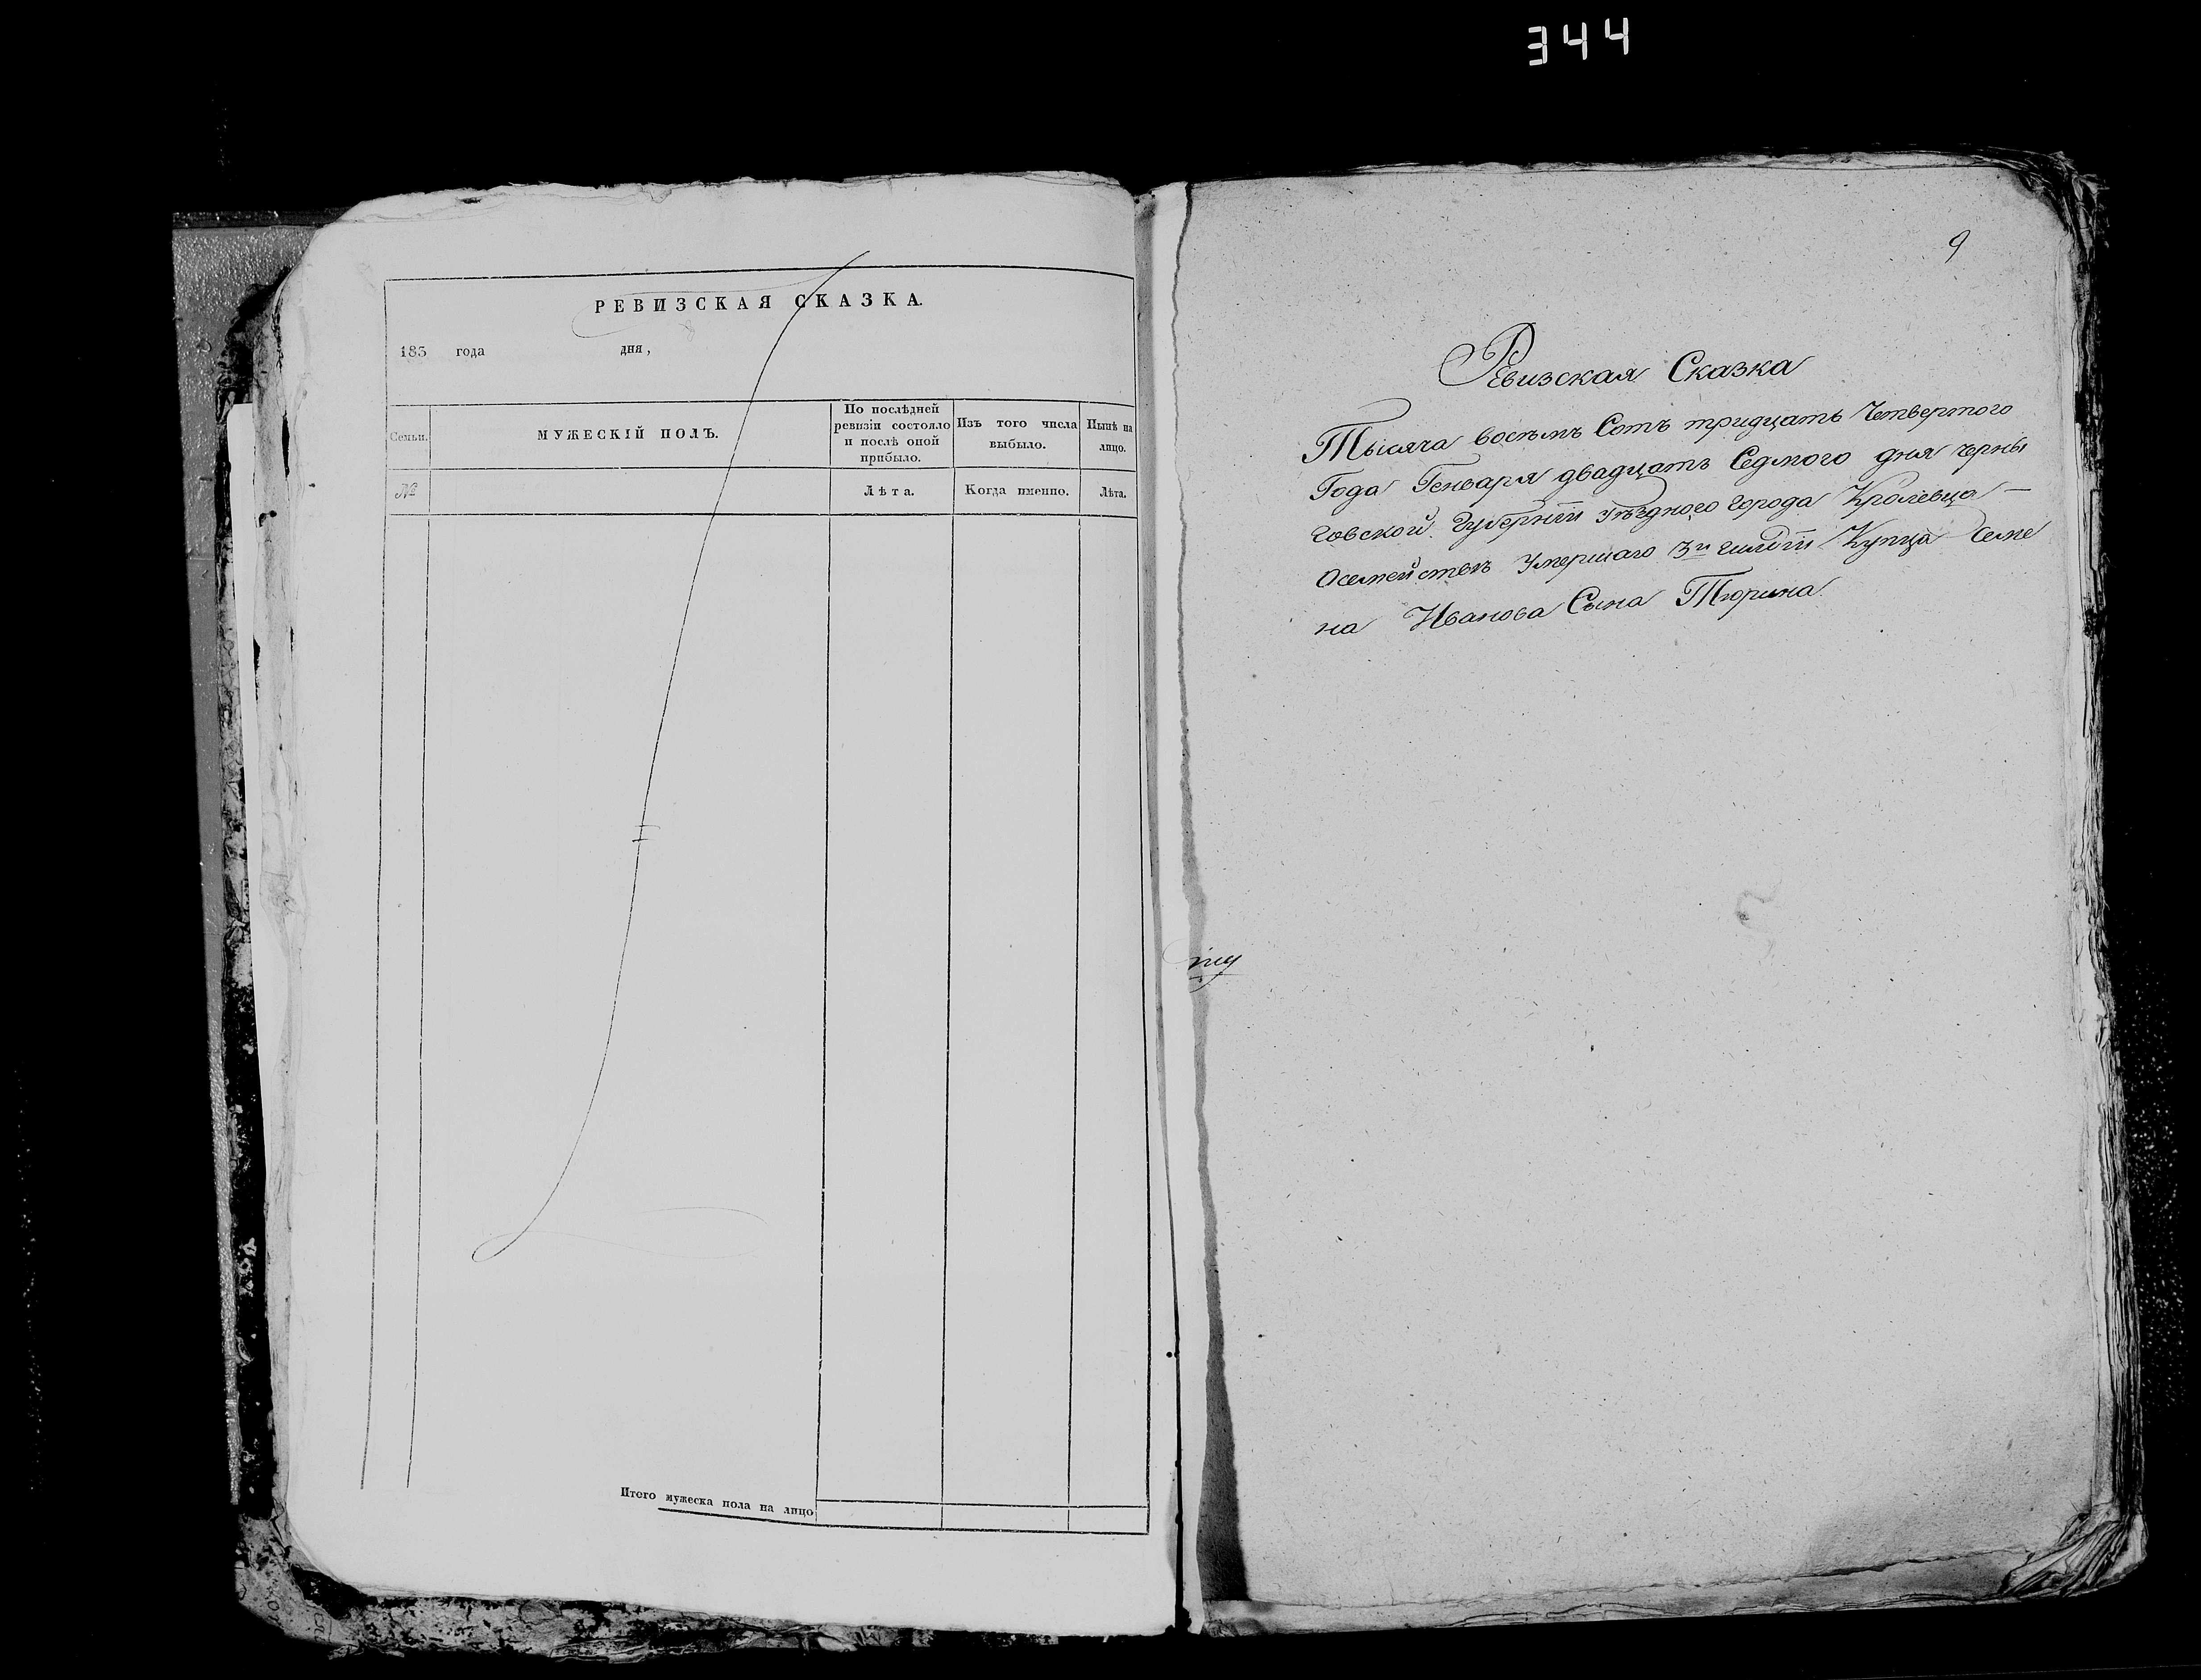 344
РЕВИЗСКАЯ СКАЗКА.
183 года дня,
Семьи.
МУЖЕСКІЙ ПОЛЪ.
По послѣдней
ревизіи состояло
и послѣ оной
прибыло.
Изъ того числа
выбыло.
Нынѣ на
лицо.
№
Лѣта.
Когда именно.
Лѣта.
Итого мужеска пола на лицо
9
Ревизская Сказка
Тысяча восѣмъ Сотъ тридцать Четвертого
Года Генваря двадцать Седмого дня черны
говской Губерніи уѣздного города Кролевца —
Осемействѣ Умершаго 3й гилдіи Купца Семе
на Иванова Сына Тюрина